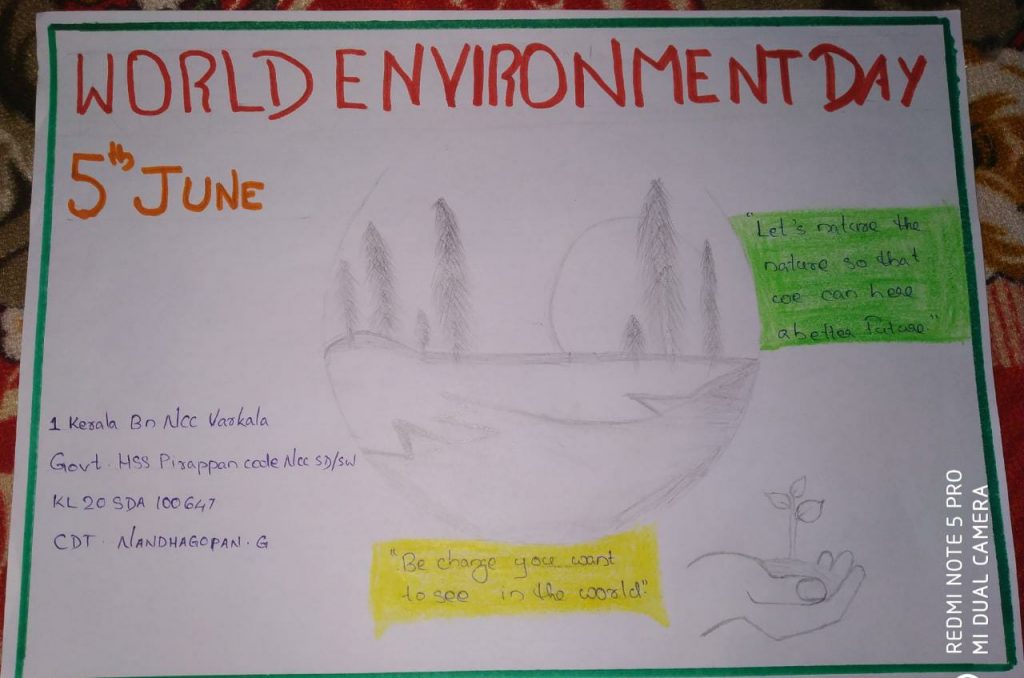 WORLD ENVIRONMENT DAY
5th JUNE
"Let's nature the
nature so that
we can here
a better Future."
1 Kerala Bn NCC Varkala
Govt. HSS Pirappancode NCC SD/SW
KL20SDA 100647
CDT. NANDHAGOPAN. G
"Be change you want
to see in the world"
REDMI NOTE 5 PRO
MI DUAL CAMERA